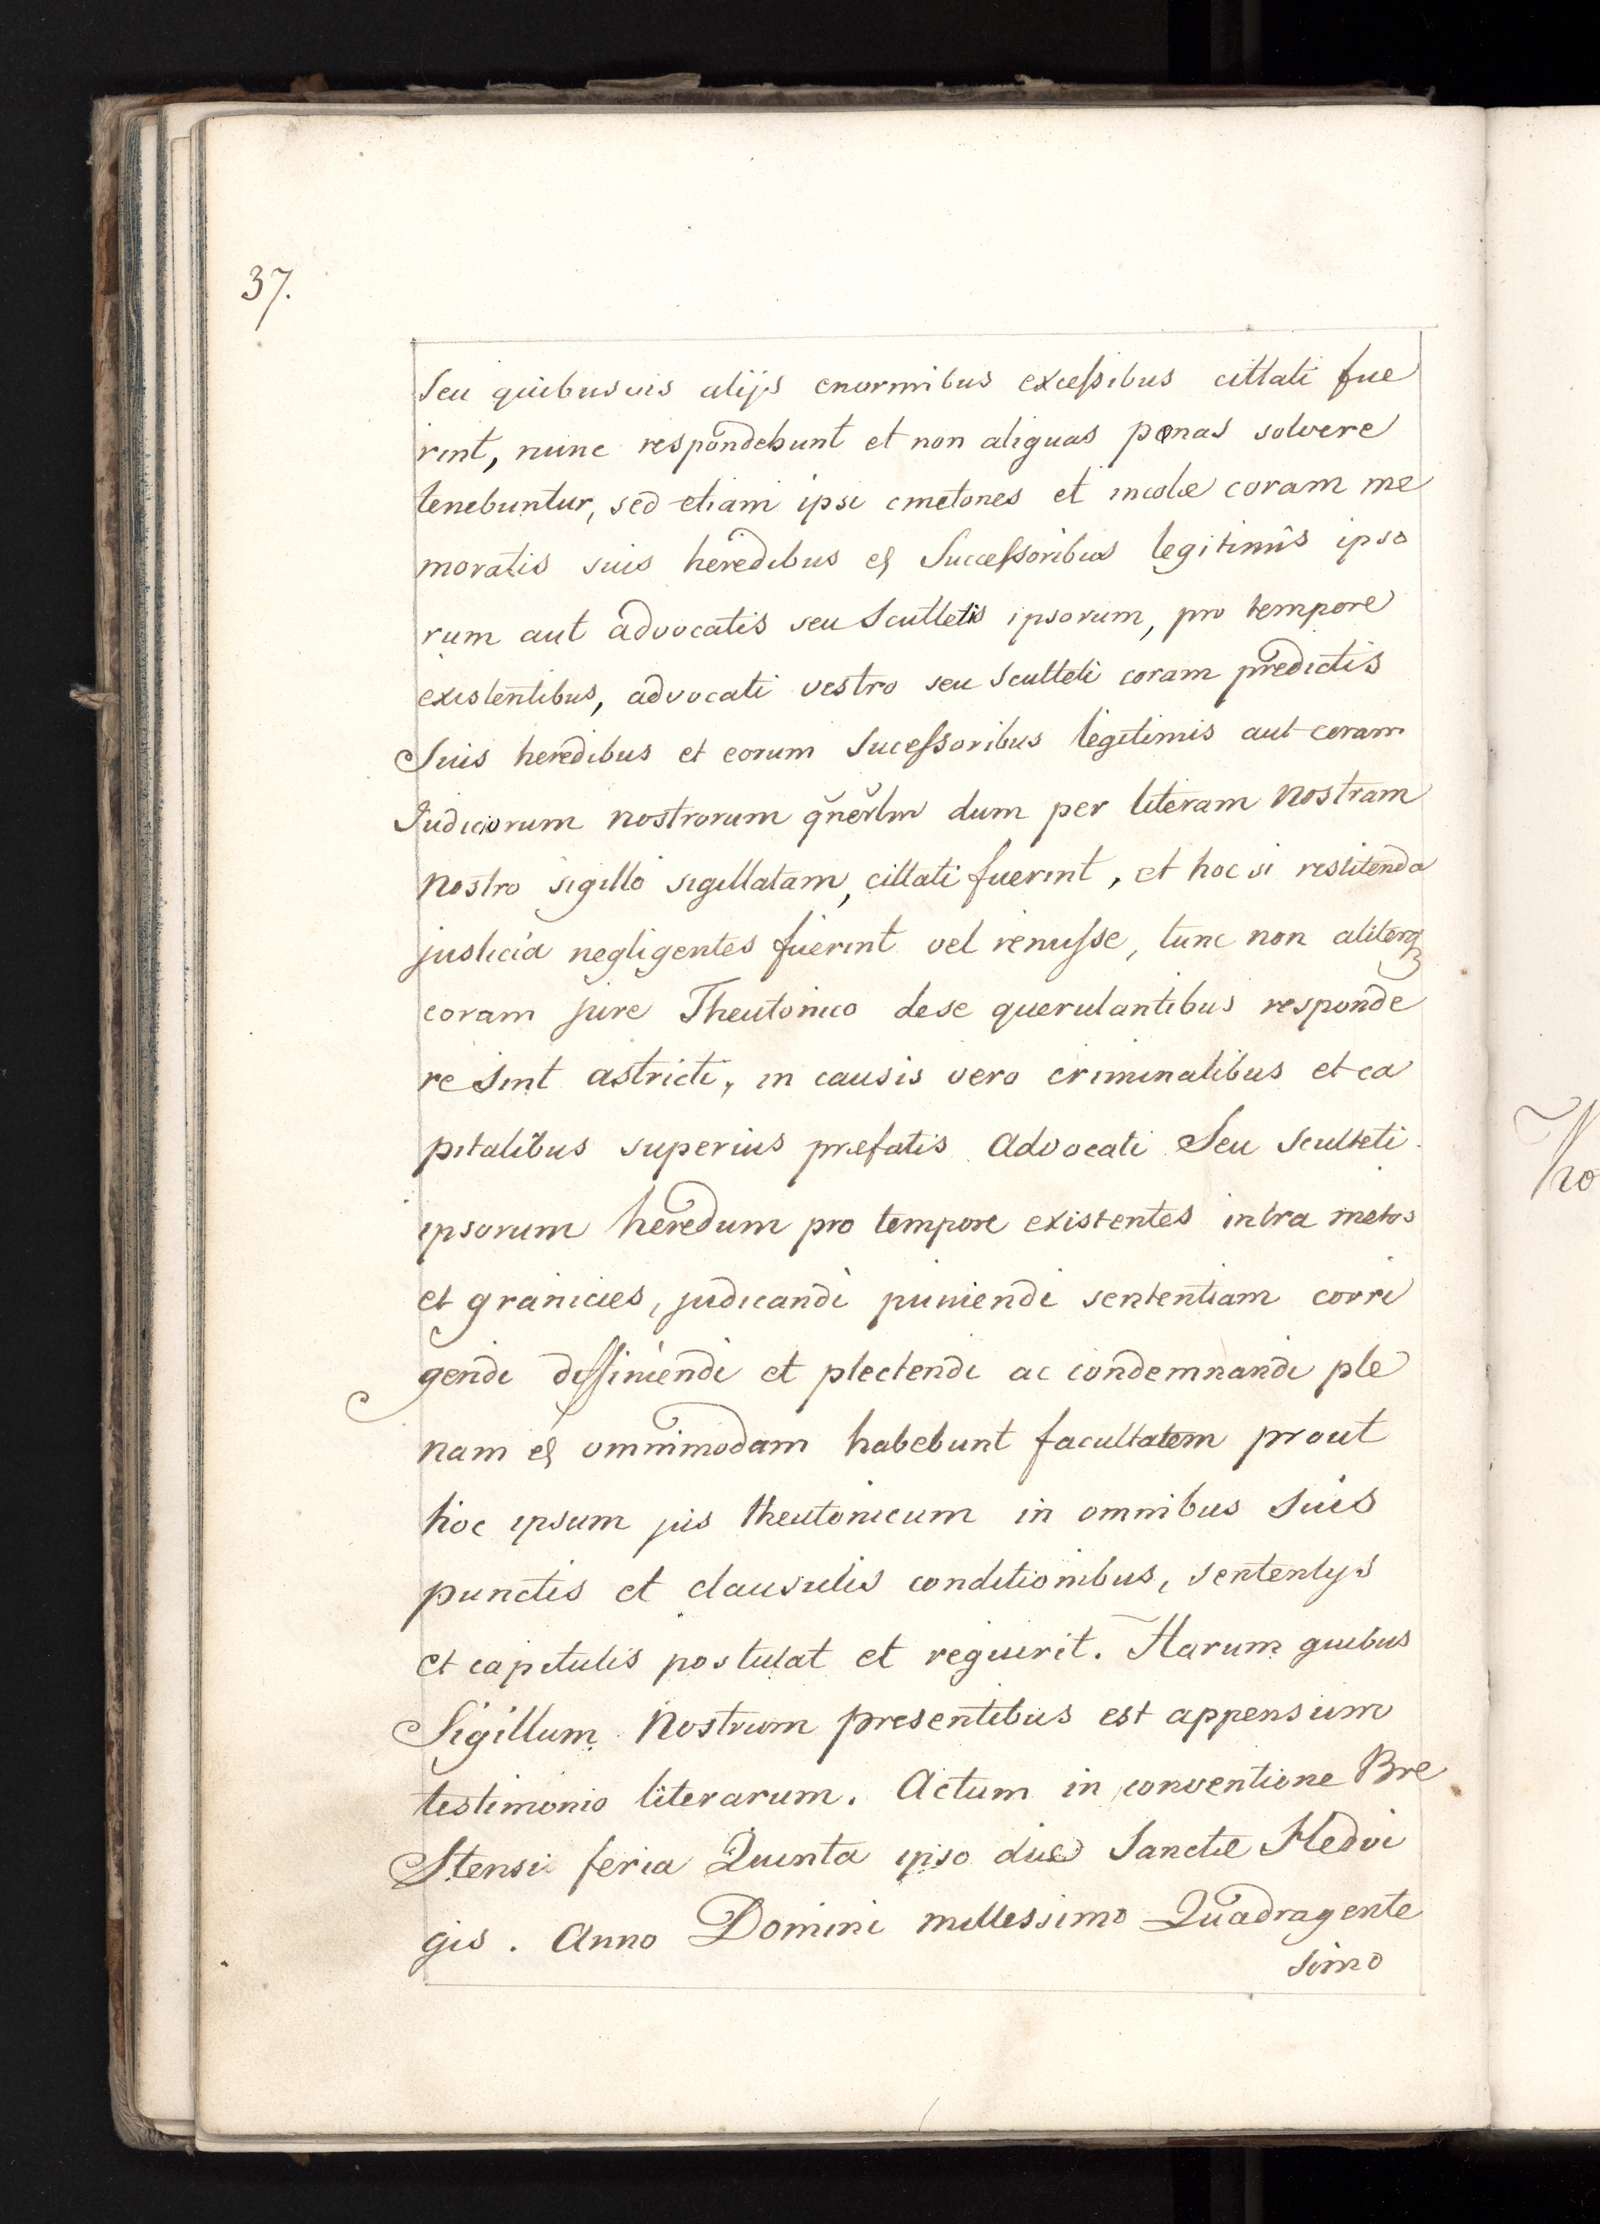 37.
Seu quibusvis alijs enormibus excessibus cittati fue
rint, nunc respondebunt et non aliquas penas solvere
tenebuntur, sed etiam ipsi cmetones et incolæ coram me
moratis suis heredibus et Successoribus legitimis ipso
rum aut advocatis seu Scultetis ipsorum, pro tempore
existentibus, advocati vestro seu sculteti coram predictis
Suis heredibus et eorum Sucessoribus legitimis aut coram
Judiciorum nostrorum dum per literam Nostram
Nostro sigillo sigillatam, cittati fuerint, et hoc si restitenda
justicia negligentes fuerint vel renusse, tunc non
coram jure Theutonico dese querulantibus responde
re Sint astricti, in causis vero criminalibus et ca
pitalibus superius prefatis Advocati Seu Sculteti
ipsorum heredum pro tempore existentes intra metas
et granicies, judicandi puniendi sententiam corri
gendi diffiniendi et plectendi ac condemnandi ple
nam et omnimodam habebunt facultatem prout
hoc ipsum jus theutonicum in omnibus Suis
punctis et clausulis conditionibus, sententijs
et capitulis postulat et requirit. Harum quibus
Sigillum Nostrum presentibus est appensum
testimonio literarum. Actum in conventione Bre
Stensi feria Quinta ipso die Sanctæ Hedvi
gis. Anno Domini millessimo Quadragente
simo
Ko